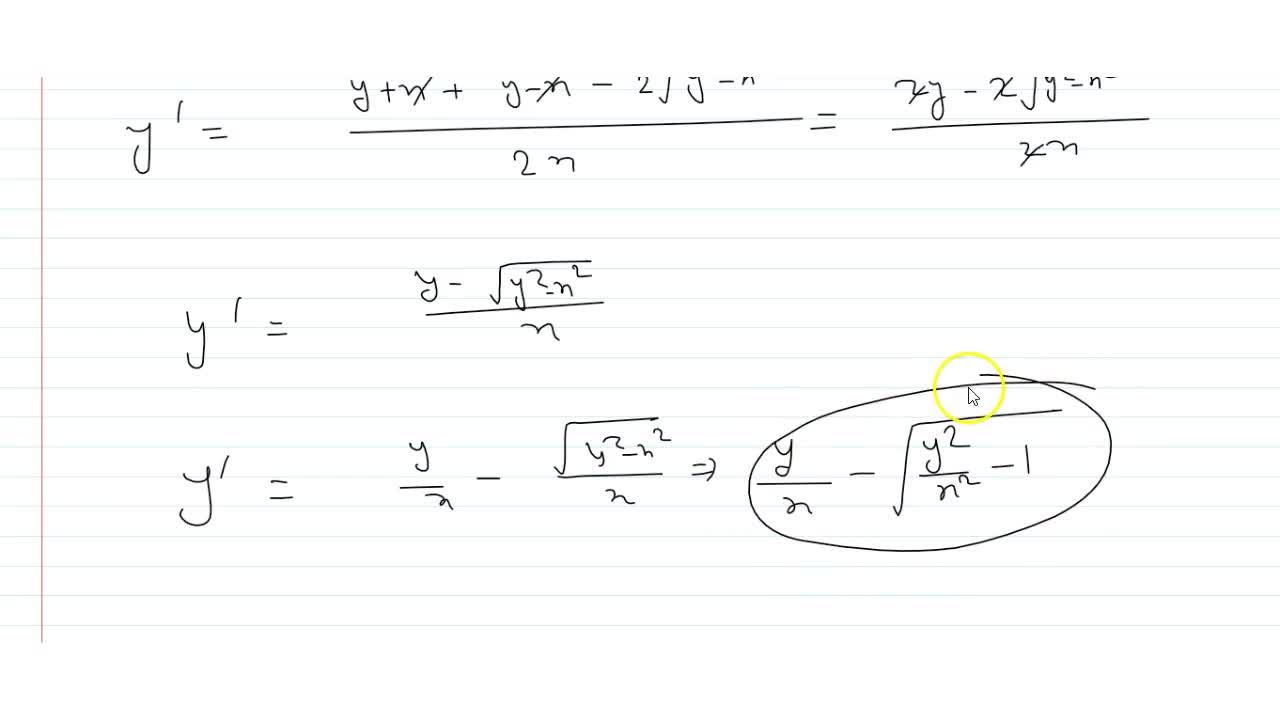 y' = (y + x + y - x - 2√(y - x)) / 2x = (2y - 2√(y² - x²)) / 2x
y' = (y - √(y² - x²)) / x
y' = y/x - √(y² - x²)/x ⇒ y/x - √(y²/x² - 1)